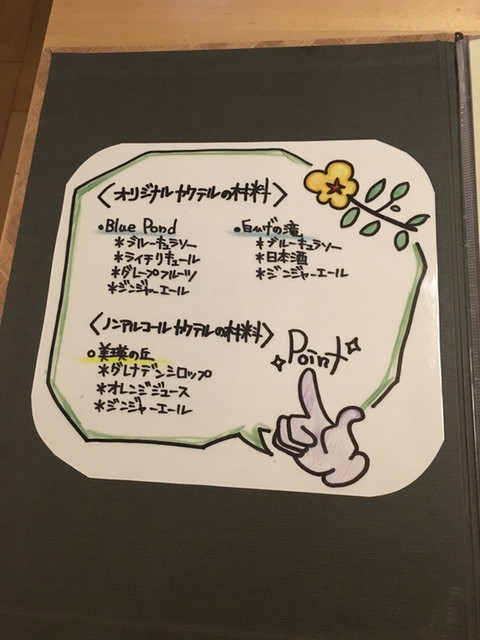 〈オリジナルカクテルの材料〉
•Blue Pond
*ブルーキュラソー
*ライチリキュール
*グレープフルーツ
*ジンジャーエール
•白ひげの滝
*ブルーキュラソー
*日本酒
*ジンジャーエール
〈ノンアルコールカクテルの材料〉
○美瑛の丘
*グレナデンシロップ
*オレンジジュース
*ジンジャーエール
Point